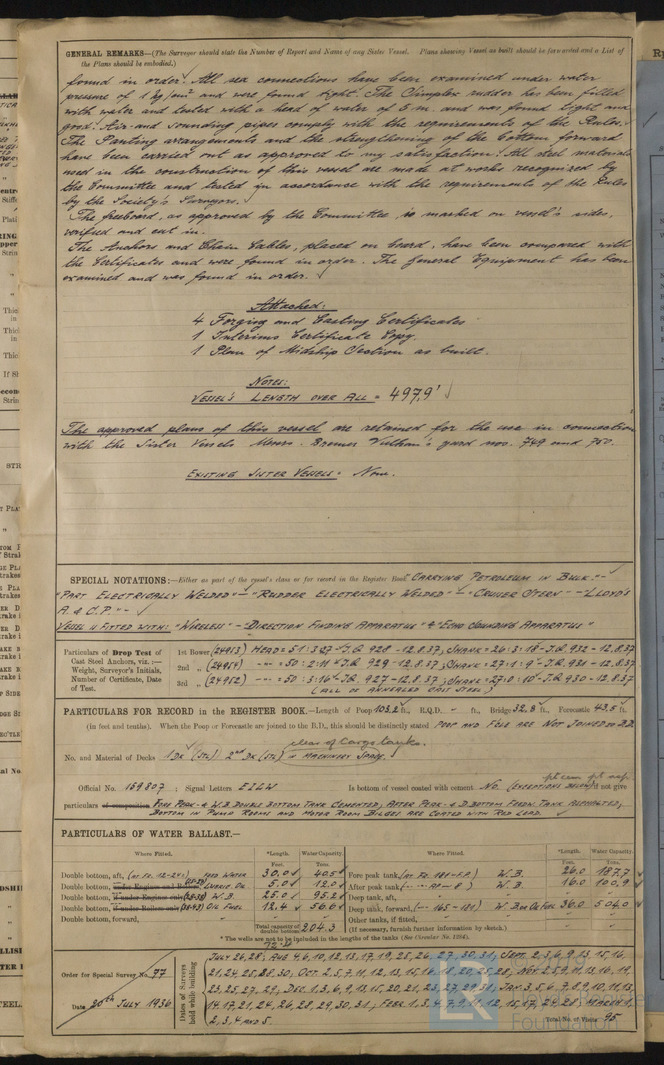 GENERAL REMARKS—(The Surveyor should state the Number of Report and Name of any Sister Vessel. Plans shewing Vessel as built should be forwarded and a List of
the Plans should be embodied.)
found in order. All sea connections have been examined under water
pressure of 1 kg/cm² and were found tight. The Simplex rudder has been filled
with water and tested with a head of water of 6 m. and was found tight and
good. Air- and sounding pipes comply with the requirements of the Rules.
The Panting arrangements and the strengthening of the bottom forward
have been carried out as approved to my satisfaction. All steel materials
used in the construction of this vessel are made at works recognized by
the Committee and tested in accordance with the requirements of the Rules
by the Society's Surveyors.
The freeboard, as approved by the Committee, is marked on vessel's sides,
verified and cut in.
The Anchors and Chain Cables, placed on board, have been compared with
the Certificates and were found in order. The General Equipment has been
examined and was found in order.
Attached:
4 Forging and Casting Certificates
1 Interims Certificate Copy.
1 Plan of Midship Section as built.
Notes:
VESSEL'S LENGTH OVER ALL = 497,9'
The approved plans of this vessel are retained for the use in connection
with the Sister Vessels Messrs. Bremer Vulkan's yard nos. 749 and 750.
EXISTING SISTER VESSELS: None.
SPECIAL NOTATIONS:—Either as part of the vessel's class or for record in the Register Book "CARRYING PETROLEUM IN BULK" -
"PART ELECTRICALLY WELDED" - "RUDDER ELECTRICALLY WELDED" - "CRUISER STERN" - "LLOYD'S
A. & C.P." -
VESSEL IS FITTED WITH: "WIRELESS" - "DIRECTION FINDING APPARATUS" & "ECHO SOUNDING APPARATUS"
Particulars of Drop Test of
Cast Steel Anchors, viz.:—
Weight, Surveyor's Initials,
Number of Certificate, Date
of Test.
1st Bower (24953) HEAD = 51:3:27 - J.Q. 928 - 12.8.37; SHANK = 26:3:18 - J.Q. 932 - 12.8.37
2nd " (24954) -"- = 50:2:11 - J.Q. 929 - 12.8.37; SHANK = 27:1:9 - J.Q. 931 - 12.8.37
3rd " (24952) -"- = 50:3:16 - J.Q. 927 - 12.8.37; SHANK = 27:0:10 - J.Q. 930 - 12.8.37
(ALL OF ANNEALED CAST STEEL)
PARTICULARS FOR RECORD in the REGISTER BOOK.—Length of Poop 103,2 ft., R.Q.D. - ft., Bridge 32,8 ft., Forecastle 43,5 ft.
(in feet and tenths). When the Poop or Forecastle are joined to the B.D., this should be distinctly stated POOP AND FCLE ARE NOT JOINED TO B.D.
clear of Cargo tanks.
No. and Material of Decks 1 DK (STL) 2nd DK (STL) IN MACHINERY SPACE.
Official No. 159807; Signal Letters EILW Is bottom of vessel coated with cement No (EXCEPTIONS BELOW) if not give
particulars of composition FORE PEAK & W.B. DOUBLE BOTTOM TANK CEMENTED, AFTER PEAK & D. BOTTOM FEEDW. TANK ASPHALTED,
BOTTOM IN PUMP ROOMS AND MOTOR ROOM BILGES ARE COATED WITH RED LEAD.
PARTICULARS OF WATER BALLAST.—
Where Fitted. *Length. Water Capacity. Where Fitted. *Length. Water Capacity.
Feet. Tons. Feet. Tons.
Double bottom, aft, (AT FR. 12-24) FEED WATER 30.0 40.5 Fore peak tank, (AT FR. 181-F.P.) W.B. 26.0 187.7
Double bottom, under Engines and Boilers LUBRIC. OIL 5.0 12.0 After peak tank (-"- AP - 8) W.B. 16.0 100,9
Double bottom, if under Engines only W.B. 25.0 95.2 Deep tank, aft,
Double bottom, if under Boilers only (38-43) OIL FUEL 12.4 56.6 Deep tank, forward, (-"- 165-181) W.B. OR OIL FUEL 36.0 504.0
Double bottom, forward, Other tanks, if fitted,
Total capacity of double bottom 204.3 (If necessary, furnish further information by sketch.)
* The wells are not to be included in the lengths of the tanks (See Circular No. 1284).
72.4
Order for Special Survey No. 77
Date 20th JULY 1936
Dates of Surveys held while building
JULY 26, 28; AUG 4, 6, 10, 12, 13, 17, 19, 25, 26, 27, 30, 31; SEPT. 2, 3, 6, 9, 13, 15, 16,
21, 24, 25, 28, 30; OCT. 2, 5, 7, 11, 12, 13, 15, 16, 18, 20, 25, 28; NOV. 2, 5, 9, 11, 13, 16, 19,
23, 25, 27, 29; DEC. 1, 3, 6, 9, 13, 15, 20, 21, 23, 27, 29, 31; JAN. 3, 5, 6, 7, 8, 9, 10, 11, 13,
14, 17, 21, 24, 26, 28, 29, 30, 31; FEBR. 1, 3, 4, 7, 9, 11, 12, 15, 17, 24, 28 MARCH 1,
2, 3, 4 AND 5.
Total No. of Visits 95